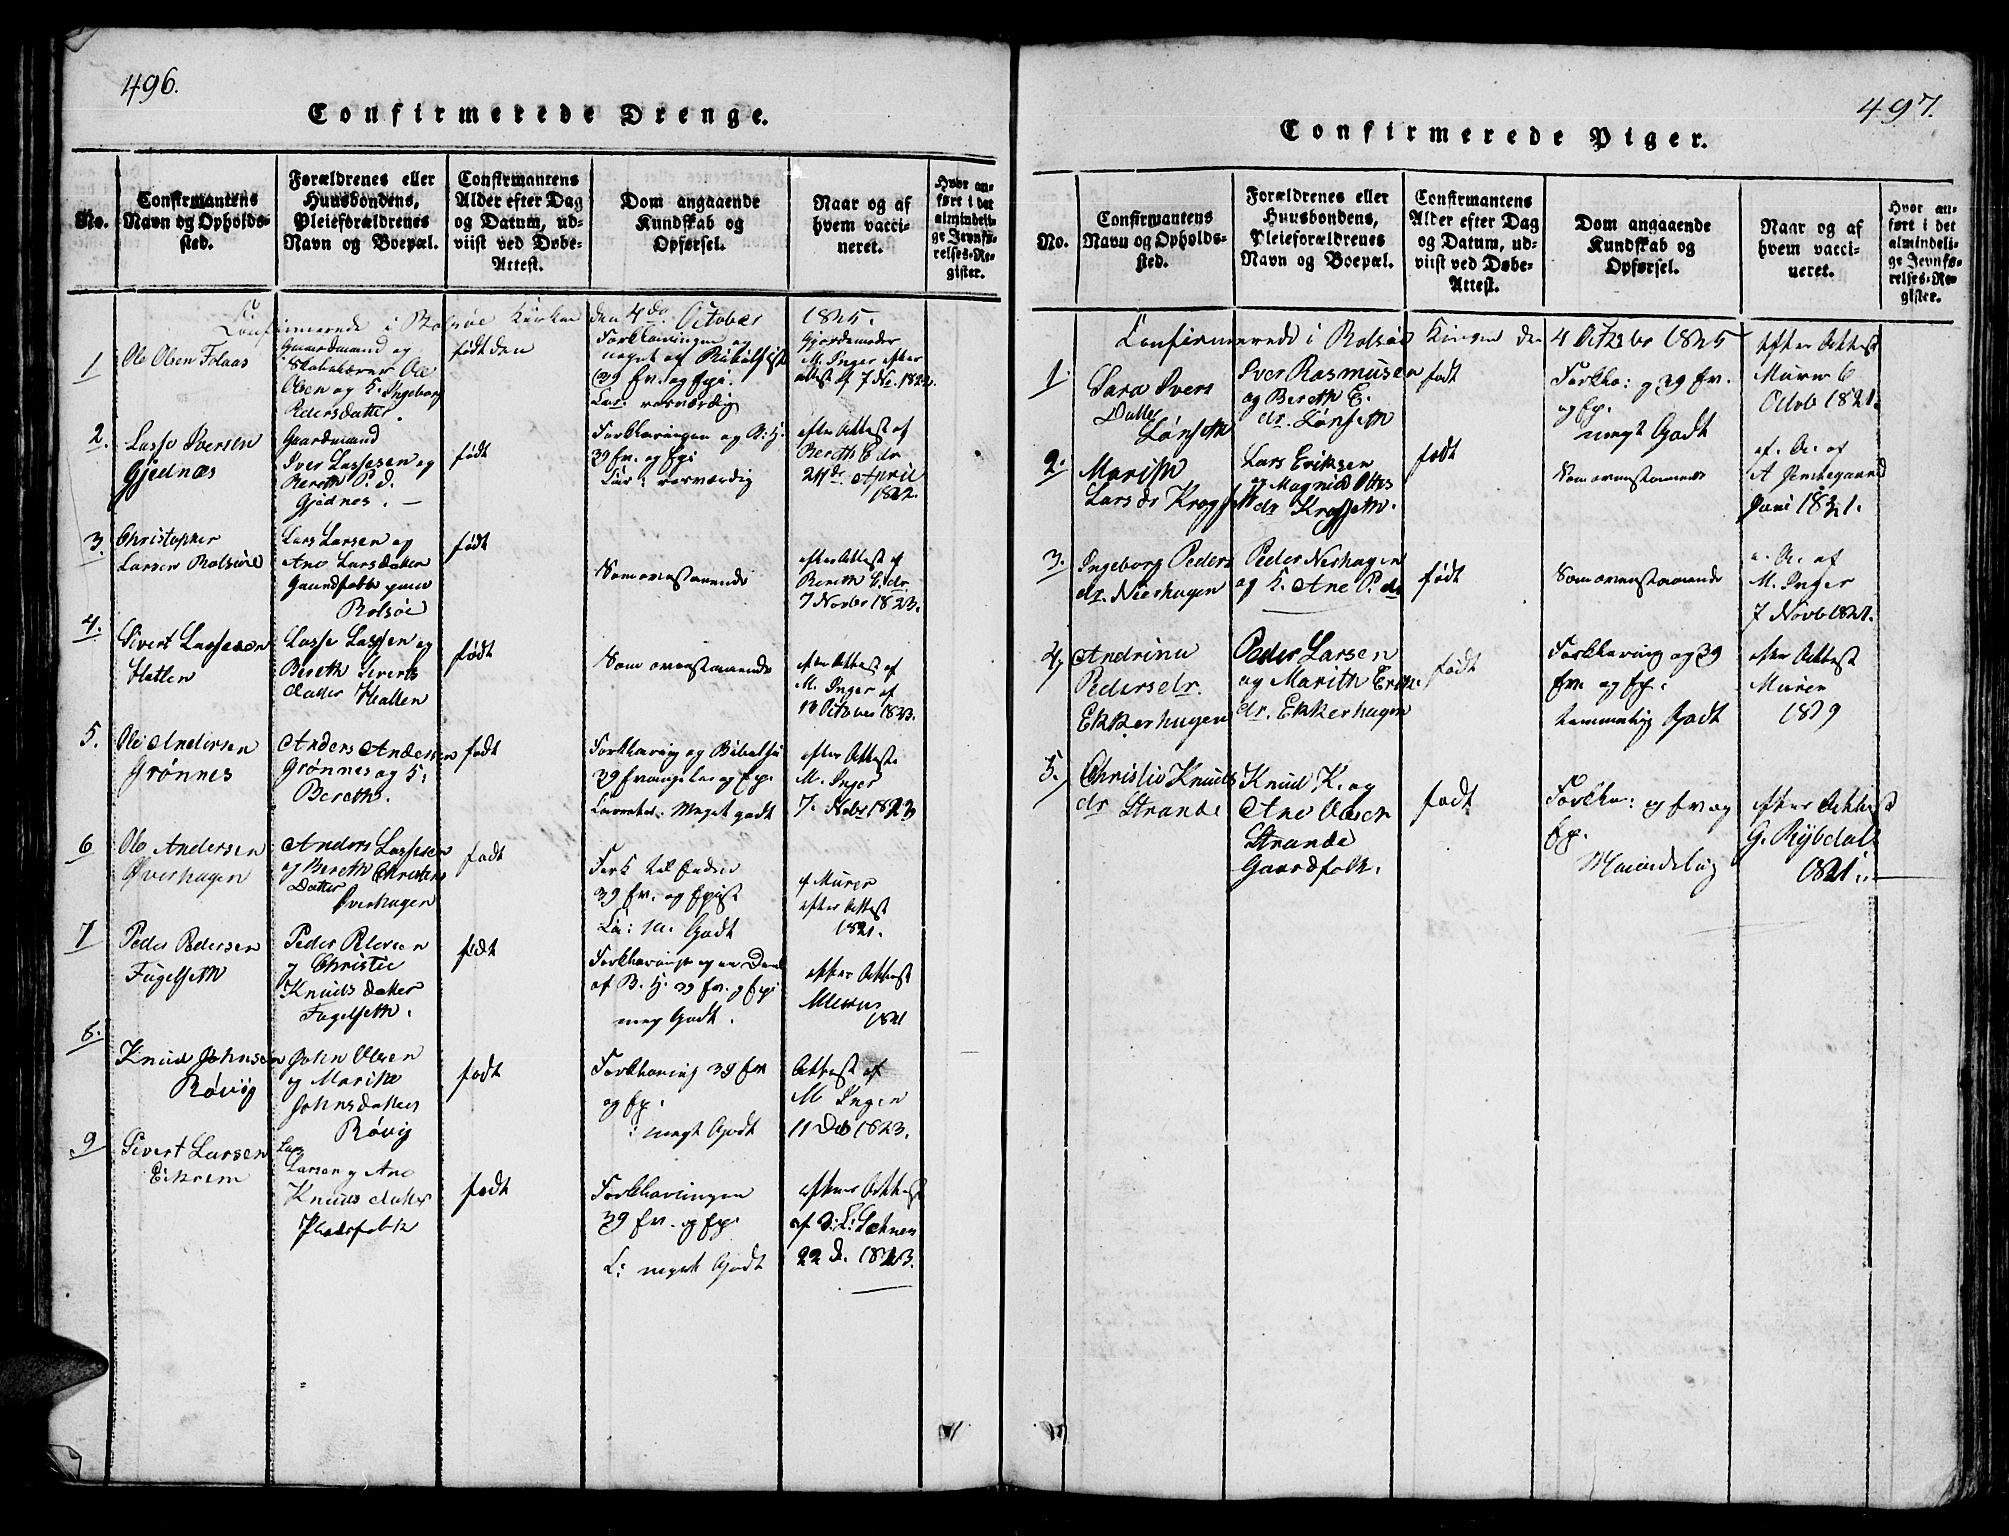 496.
Confirmerede Drenge.
No.
Confirmantens Navn og Opholds-sted.
Forældrenes eller Huusbondens, Pleieforældrenes Navn og Boepæl.
Confirmantens Alder efter Dag og Datum, ud-viist ved Døbe-Attest.
Dom angaaende Kundskab og Opførsel.
Naar og af hvem vacci-neret.
Hvor an-ført i det almindeli-ge Jevnfø-relses-Re-gister.
Confirmerede i Bolsøe Kirke den 4de October 1825.
1
Ole Olsen Folaas
Gaardmand og
Skolelærer Ole
Olsen og K. Ingeborg
Pedersdatter.
født den
Forklaringen og
noget af Bibelhist
39 Ev. og Epi.
værdig
Gjordemoder
M. Inger efter
attest af 7 No. 1822.
2.
Lasse Iversen
Gjednæs
Gaardmand
Iver Lassesen og
Bereth P. d.
Gjednes. —
født
Forklaringen og B: H:
39 Ev. og Epi
værdig
efter Attest af
Bereth E dr
24de April
1822.
3.
Christopher
Larsen Bolsøe
Lars Larsen og
Ane Larsdatter
Gaardfolk paa
Bolsøe
født
Som ovenstaaende
efter Attest af
Bereth E. dr.
7 Novbr 1823.
4.
Sivert Lassesen
Hatlen
Lasse Lassen og
Bereth Siverts
datter Hatlen
født
Som ovenstaaende
efter Attest af
M. Inger af
13 October 1823.
5.
Ole Andersen
Grønnes
Anders Andersen
Grønnes og K:
Bereth.
født
Forklaring og Bibelhi
39 Evangelier og Epi
Meget godt
efter Attest
M. Inger
7. Nobr 1823
6
Ole Andersen
Øverhagen
Anders Lassesen
og Bereth Christens
Datter
Øverhagen
født
Fork til Enden
39 Ev. og Epist
Godt
af Murer
efter Attest
1821.
7
Peder Pedersen
Fugelseth
Peder Pedersen
og Christie
Knuds datter
Fugelseth.
født
Forklaring og en Deel
af B. H. 39 Ev. og Epi
meg Godt.
efter Attest
1821
8.
Knud Johnsen
Røvig
John Olsen
og Marithe
Johnsdatter
Røvig
født
Forklaring 39 Ev
og Ep:
: megt Godt
Attest af
M. Inger
11 Deb 1823.
9
Sivert Larsen
Eikrem
Lars
Larsen og Ane
Knuds datter
Pladsfolk
født
Forklaringen
39 Ev. og Epi
L: meget Godt
efter Attest
af
22 D. 1823.
497.
Confirmerede Piger.
No.
Confirmantens Navn og Opholds-sted.
Forældrenes eller Huusbondens, Pleieforældrenes Navn og Boepæl.
Confirmantens Alder efter Dag og Datum, ud-viist ved Døbe-Attest.
Dom angaaende Kundskab og Opførsel.
Naar og af hvem vacci-neret.
Hvor an-ført i det almindeli-ge Jevnfø-relses-Re-gister.
Confirmerede i Bolsøe Kirken den 4 October 1825
1.
Sara Ivers
Datter
Lønseth
Iver Rasmusen
og Bereth E.
dr. Lønseth
født
Forkla: og 39 Ev.
og Ep.
megt Godt
efter Attest
Murer 6
Octob 1821.
2.
Marith
Lars dr Krogseth
Lars Eriksen
og Magnild Ottes
dr Krogseth.
født
Som ovenstaaende
ef. At. af
Juni 1821.
3.
Ingeborg Peders
dr. Nerhagen
Peder Nerhagen
og K. Ane P. dr
født
Som ovenstaaende
e. At. af
M. Inger
7 Novb 1821.
4.
Andrina
Pedersdr.
Ekkerhagen
Peder Larsen
og Marith Eriks
dr. Ekkerhagen
født
Forklaring og 39
Ev. og Ep:
temmelig Godt
efter Attest
Murer
1819
5.
Christie Knuds
dr Strande
Knud K. og
Ane Olsdr
Strande
Gaardfolk.
født
Forkla: og Ev og
Ep.
Maadelig
efter Attest
G. Rybdal
1821. —